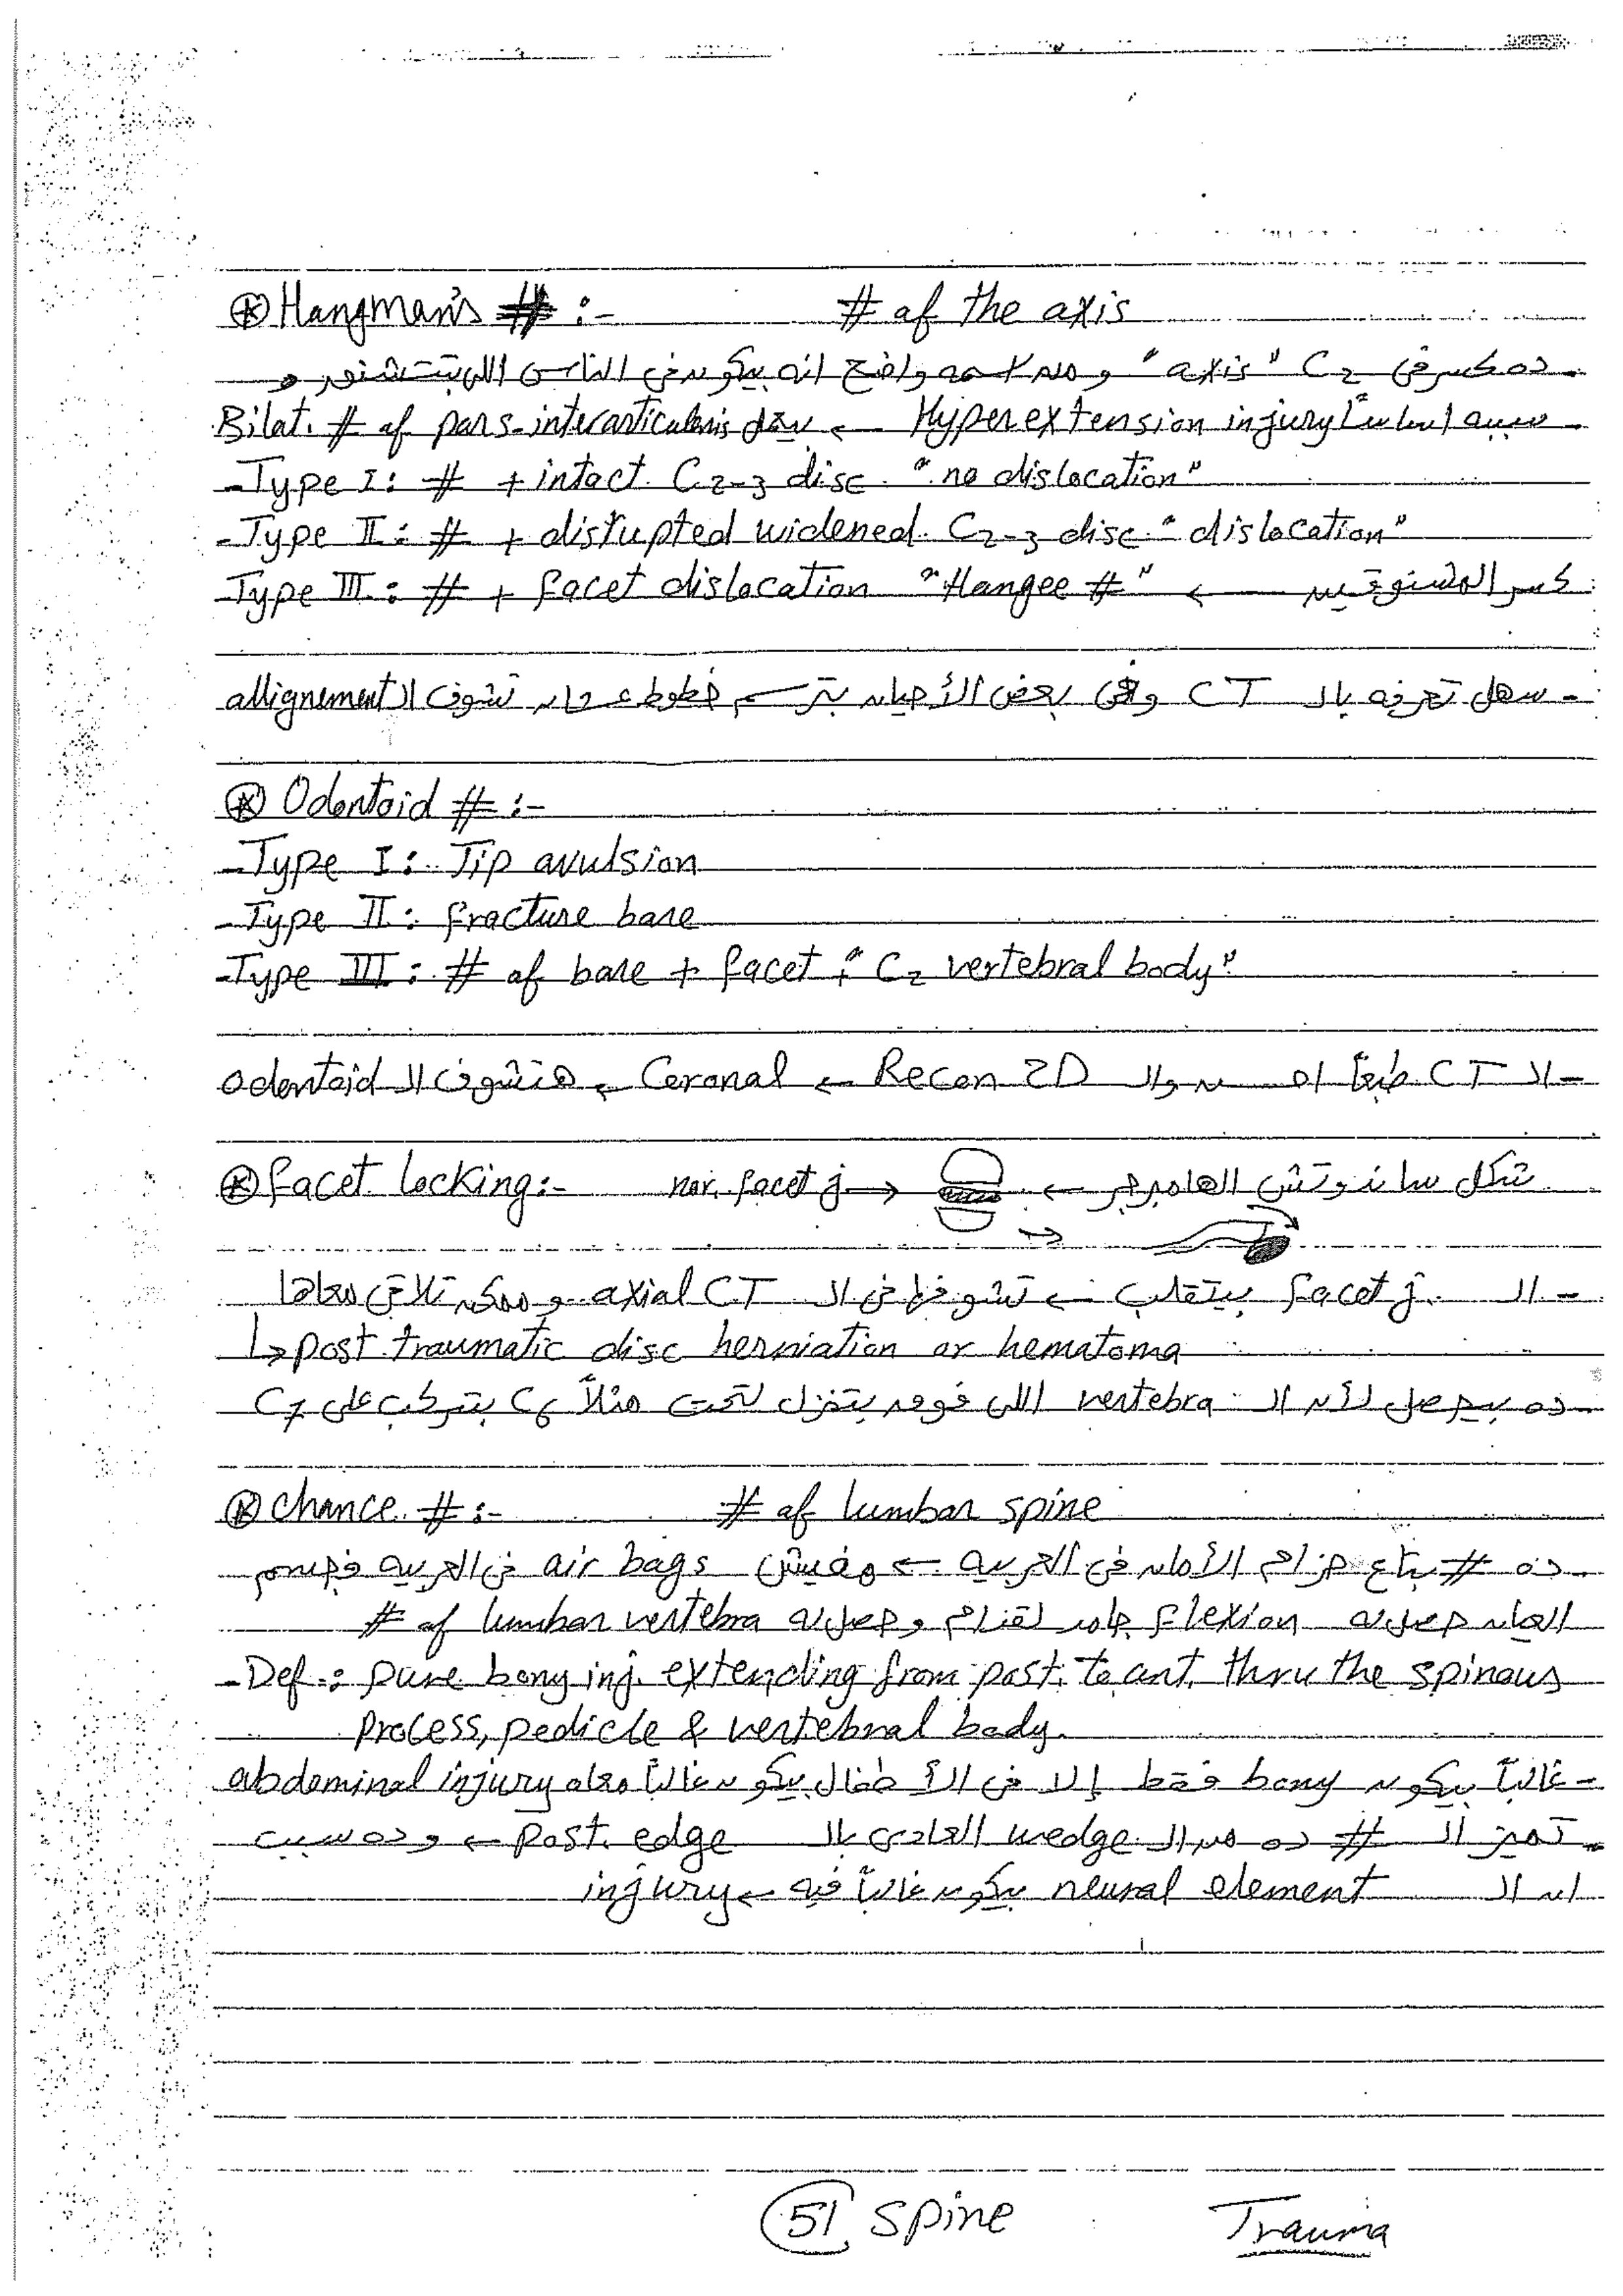 ⊛ Hangman's # :- # of the axis
- ده كسر فى C2 "axis" و من اسمه واضح انه بيكون فى الناس اللى بتتشنق و
- سببه اساساً Hyperextension injury ← يعمل Bilat. # of pars-interarticularis
- Type I : # + intact C2-3 disc "no dislocation"
- Type II : # + disrupted widened C2-3 disc "dislocation"
- Type III : # + facet dislocation "Hangee #" ← كسر المشنوقين
- سهل تعرفه بال CT وفى بعض الأحيان بترسم خطوط عشان تشوف ال allignement
⊛ Odontoid # :-
- Type I : Tip avulsion
- Type II : fracture base
- Type III : # of base + facet + "C2 vertebral body"
- ال CT طبعاً احسن وال Recon 2D ← Coronal ← هتشوف ال odontoid
⊛ Facet locking :- nor. facet j → ← شكل ساندوتش الهامبرجر
- ال facet j. بيتقلب ← تشوفها فى ال axial CT و ممكن تلاقى معاها
↳ post traumatic disc herniation or hematoma
- ده بيحصل لأن ال vertebra اللى فوق بتنزل لتحت مثلاً C6 بتركب على C7
⊛ Chance # :- # of lumbar spine
- ده # بتاع حزام الأمان فى العربيه ← مفيش air bags فى العربيه فجسم
العيان حصل له flexion جامد لقدام و حصل له # of lumbar vertebra
- Def : pure bony inj. extending from post. to ant. thru the spinous
process, pedicle & vertebral body.
- غالباً بيكون bony فقط إلا فى الأطفال بيكون غالباً معاه abdominal injury
- تميز ال # ده من ال wedge العادى بال post. edge ← و ده سبب
ان ال neural element بيكون غالباً فيه ← injury
51 Spine Trauma